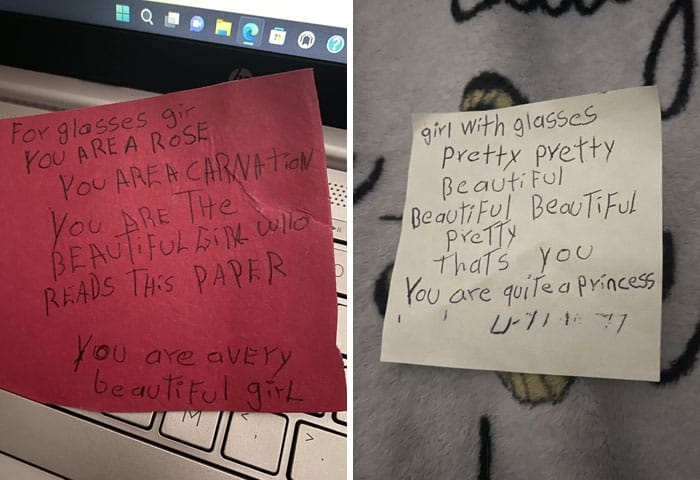 For glasses gir
YOU ARE A ROSE
YOU ARE A CARNATION
YOU ARE THE
BEAUTIFUL GIRL WHO
READS THIS PAPER
You are a very
beautiful girl
girl with glasses
Pretty pretty
Beautiful
Beautiful Beautiful
Pretty
thats you
You are quite a princess